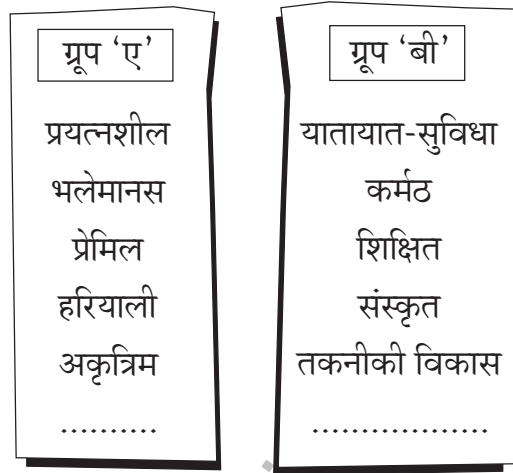 ग्रूप ‘ए’
प्रयत्नशील
भलेमानस
प्रेमिल
हरियाली
अकृत्रिम
..........
ग्रूप ‘बी’
यातायात-सुविधा
कर्मठ
शिक्षित
संस्कृत
तकनीकी विकास
..................